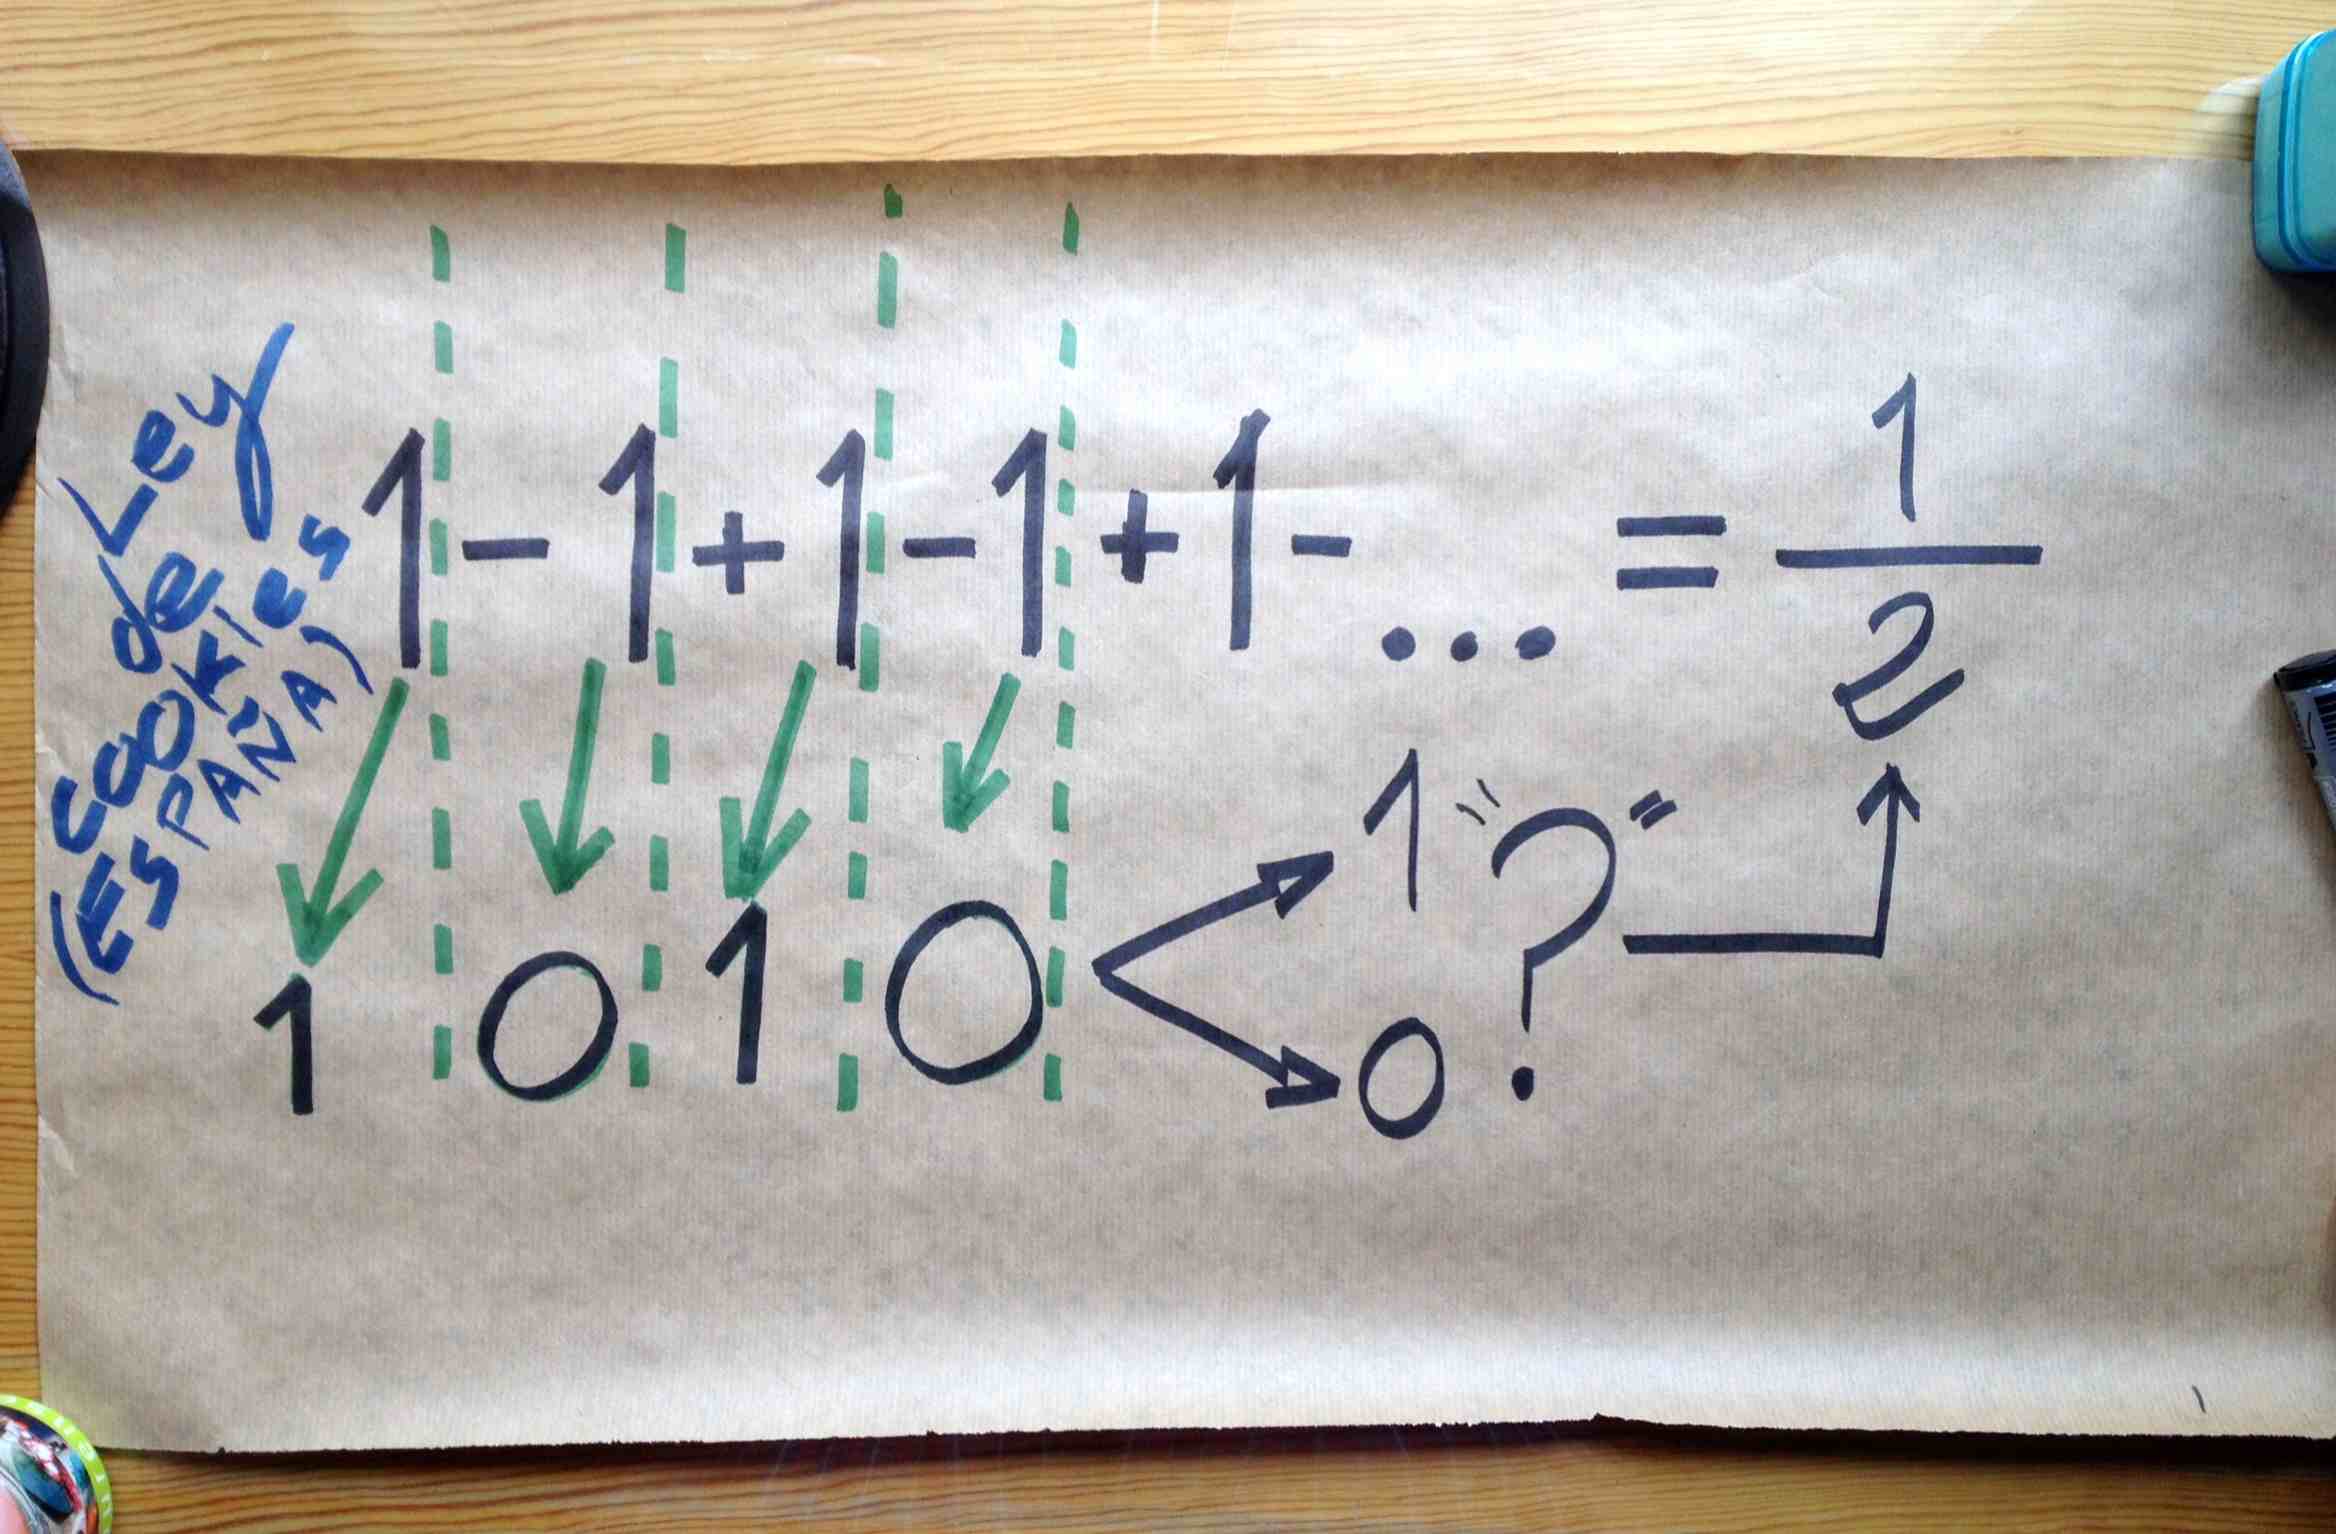 Ley
de
cookies
(ESPAÑA)
1 - 1 + 1 - 1 + 1 - ... = 1/2
1 0 1 0 1 "?" 0